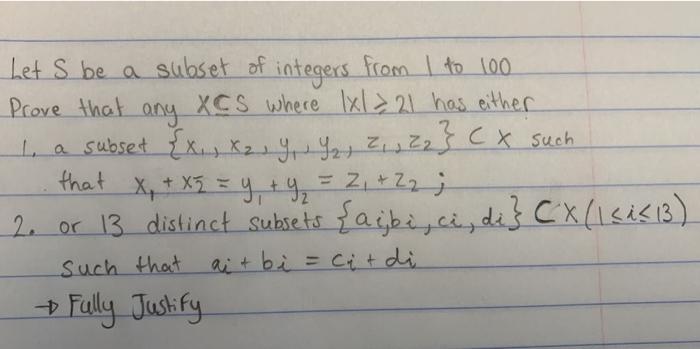 Let S be a subset of integers from 1 to 100
Prove that any X⊆S where |x| ≥ 21 has either
1. a subset {x₁, x₂, y₁, y₂, z₁, z₂} ⊂ X such
that x₁ + x₂ = y₁ + y₂ = z₁ + z₂ ;
2. or 13 distinct subsets {ai,bi, ci, di} ⊂ X (1≤i≤13)
such that ai + bi = ci + di
→ Fully Justify